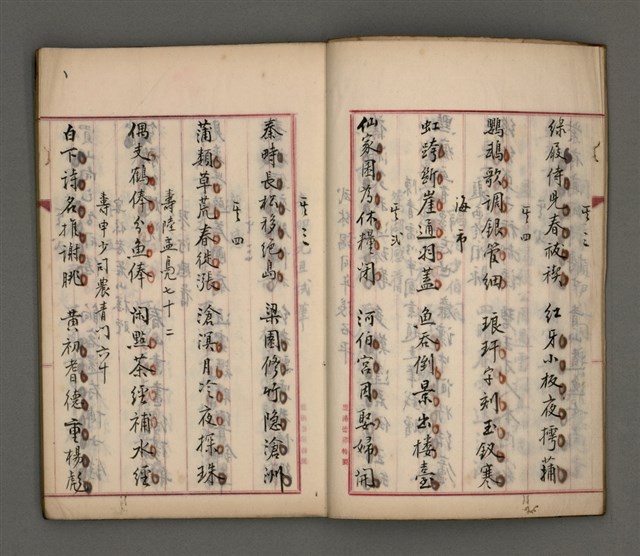 其三
綠展侍兒春祓禊 紅牙小板夜摴蒱
其四
鸚鵡歌調銀管細 琅玕字刻玉釵寒
海市
虹跨斷崖通羽蓋 魚吞倒景出樓臺
其弍
仙家困為休糧閉 河伯宮因娶婦開
其三
秦時長松移絕島 梁園修竹隱滄洲
蒲類草荒春徙漲 滄溟月冷夜探珠
其四
壽陸孟鳧七十二
偶支鶴俸分魚俸 閒點茶經補水經
壽申少司農青門六十
白下詩名推謝脁 黃初耆德重楊彪